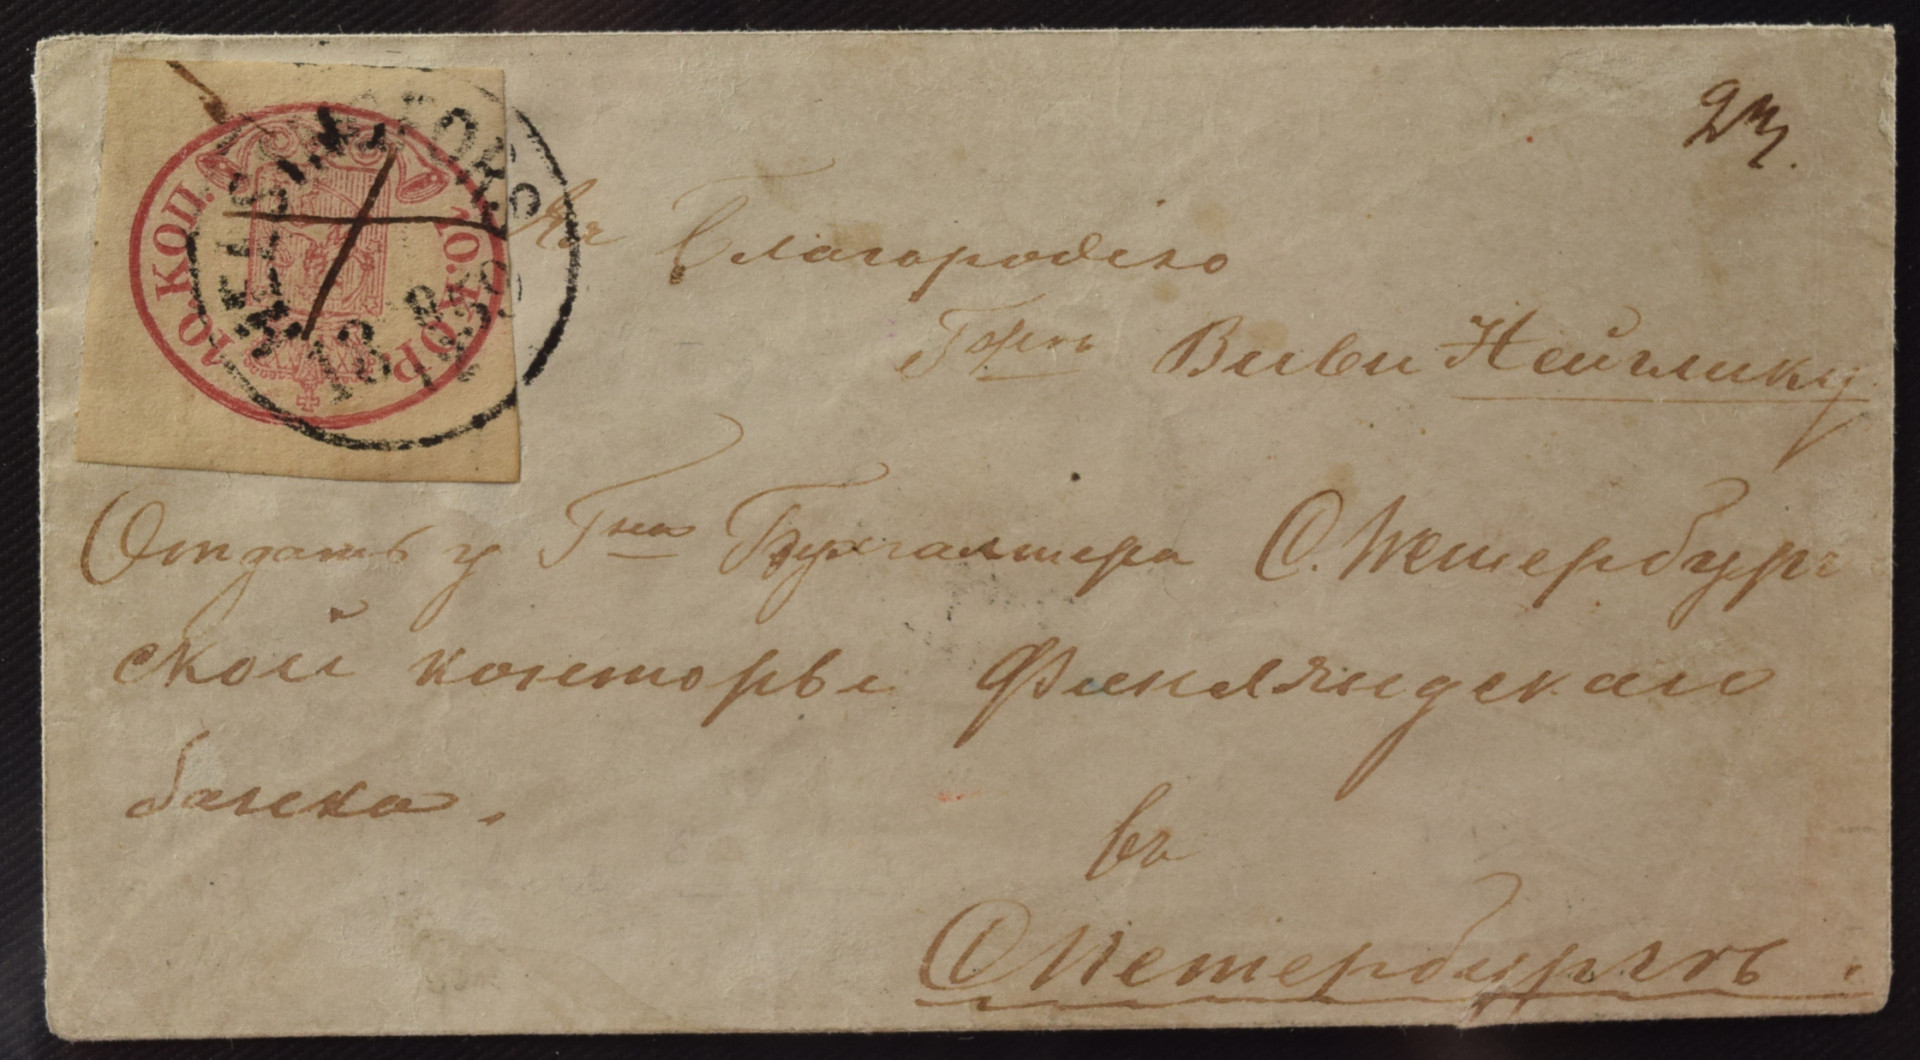 10.КОП. 10.KOP.
HELSINGFORS
13 8
1859
Его Благородію
Гжнъ Виви Нейглику
Отдать у Гна Бухгалтера С.Петербург
ской конторы Финляндскаго
банка.
въ
СПетербургѣ.